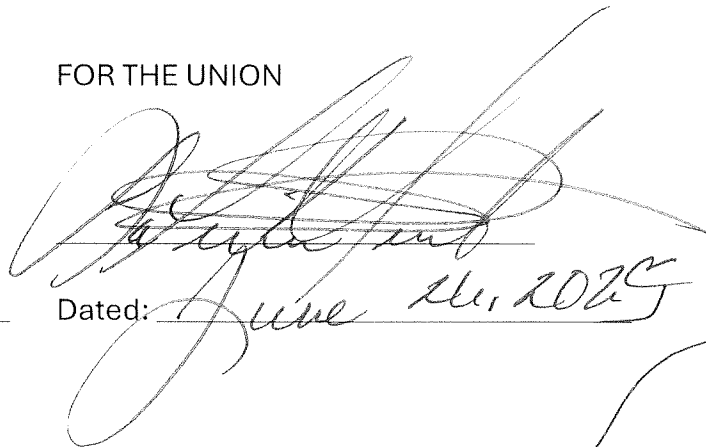 FOR THE UNION
Dated: June 26, 2025